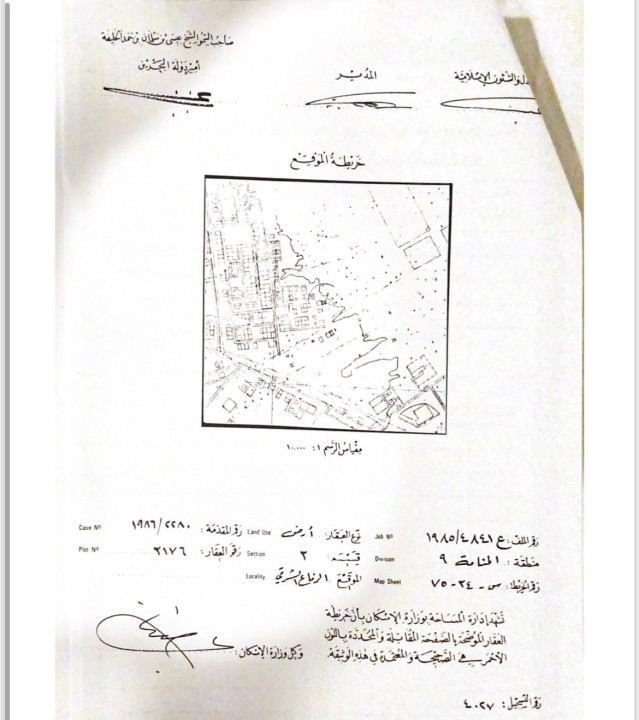 صاحب السمو الشيخ عيسى بن سلمان بن حمد الخليفة
أمير دولة البحرين
المدير
دل والشئون الإسلامية
خريطة الموقع
مقياس الرسم ١ : ١٠,٠٠٠
رقم الملف : ع ١٩٨٥/٤٨٤١ Job Nº نوع العقار : أرض Land Use رقم المقدمة : ١٩٨٦/٢٢٨٠ Case Nº
منطقة : المنامة ٩ Division قسيمة ٣ Section رقم العقار : ٢١٧٦ Plot Nº
رقم الخريطة : س - ٢٤ - ٧٥ Map Sheet الموقع الرفاع الشرقي Locality
تشهد إدارة المساحة بوزارة الإسكان بأن خريطة
العقار الموضحة بالصفحة المقابلة والمحددة باللون
الأحمر هي الصحيحة والمعتمدة في هذه الوثيقة.
وكيل وزارة الإسكان :
رقم التسجيل : ٤٠٢٧